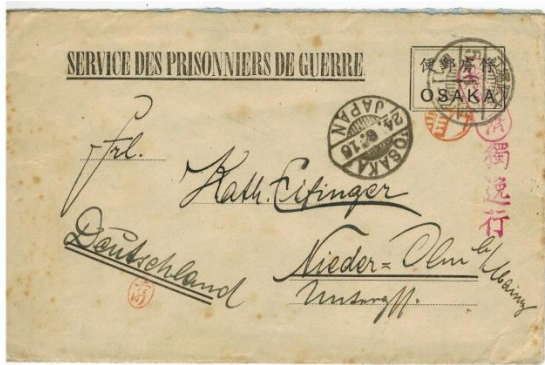 SERVICE DES PRISONNIERS DE GUERRE
俘虜郵便
OSAKA
OSAKA
24. 16
JAPAN
濟
獨逸行
Frl.
Kath. Eifinger
Deutschland
Nieder=Olm b/ Mainz